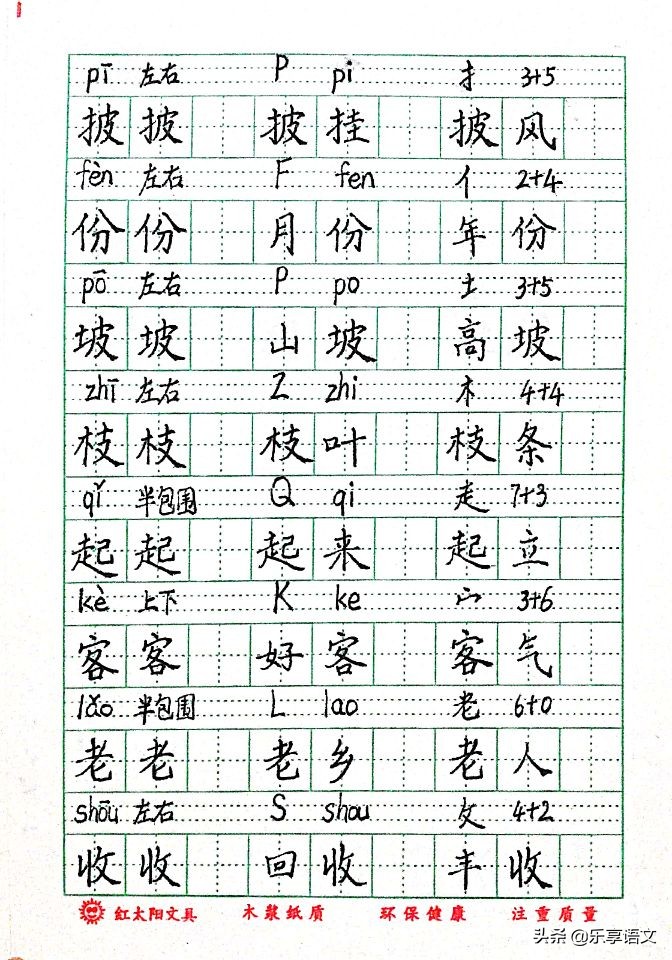 pī 左右 P pi 扌 3+5
披 披 披 挂 披 风
fèn 左右 F fen 亻 2+4
份 份 月 份 年 份
pō 左右 P po 土 3+5
坡 坡 山 坡 高 坡
zhī 左右 Z zhi 木 4+4
枝 枝 枝 叶 枝 条
qǐ 半包围 Q qi 走 7+3
起 起 起 来 起 立
kè 上下 K ke 宀 3+6
客 客 好 客 客 气
lǎo 半包围 L lao 老 6+0
老 老 老 乡 老 人
shōu 左右 S shou 攵 4+2
收 收 回 收 丰 收
红太阳文具 木浆纸质 环保健康 注重质量
头条 @乐享语文